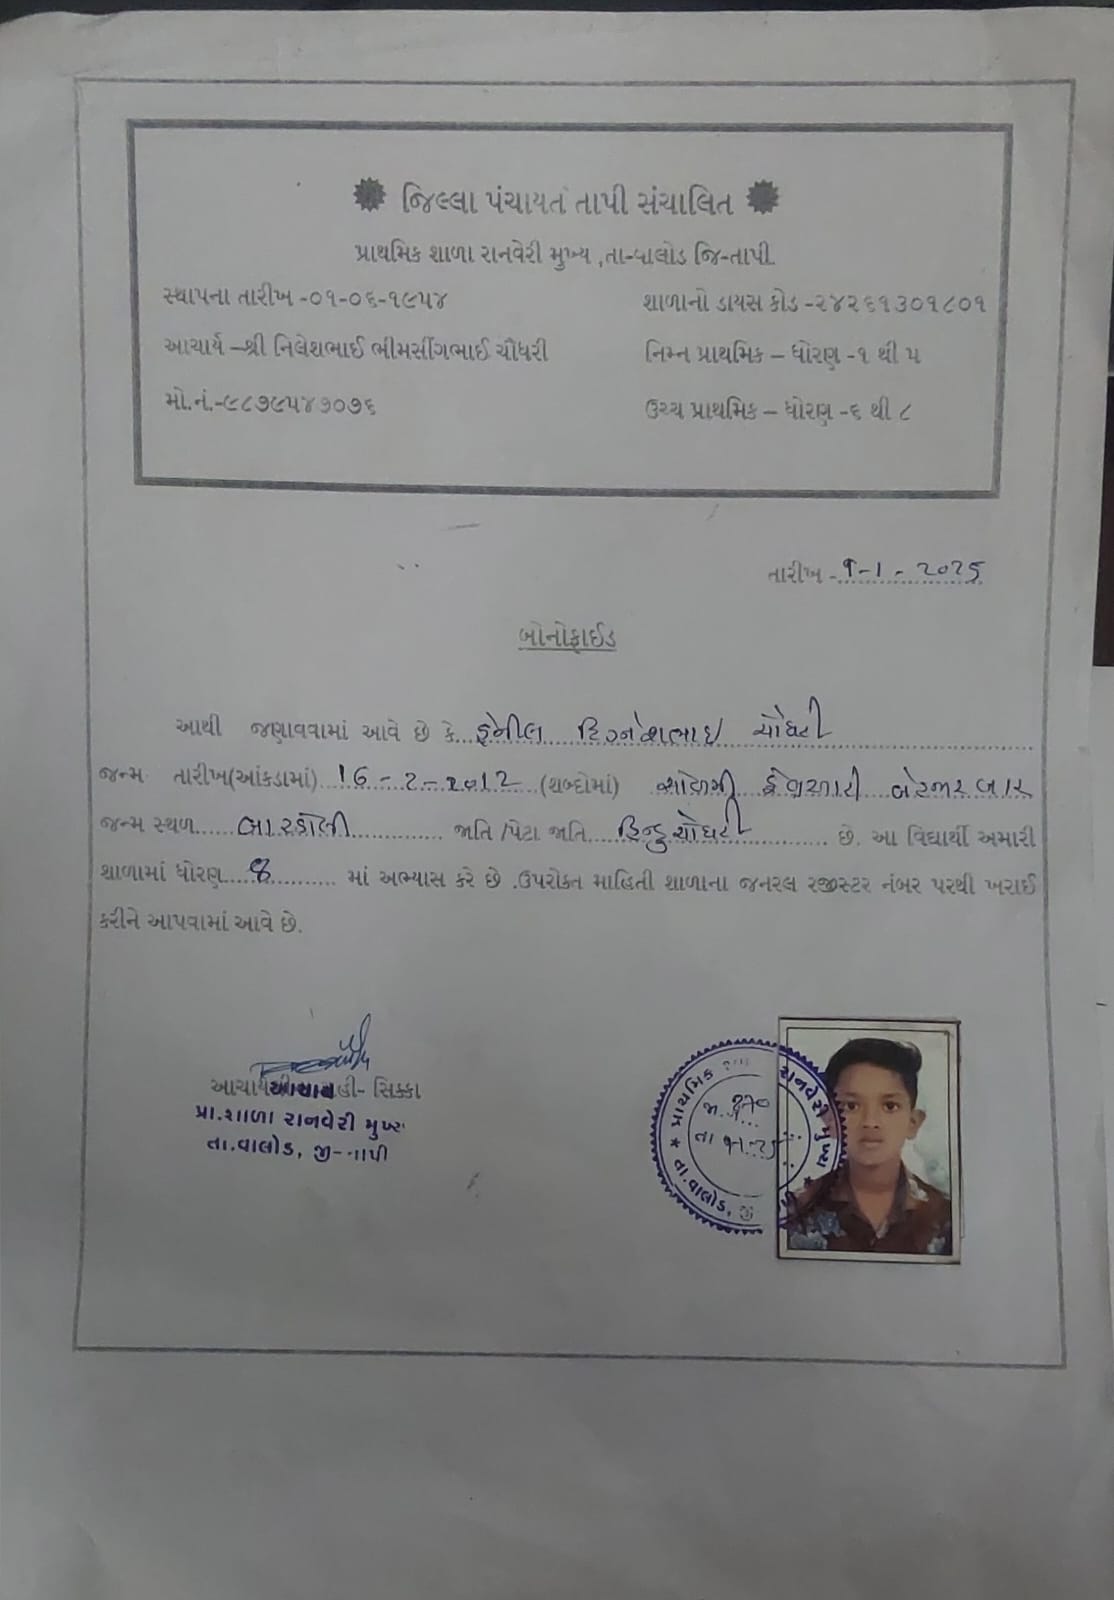 જિલ્લા પંચાયત તાપી સંચાલિત
પ્રાથમિક શાળા રાનવેરી મુખ્ય ,તા-વાલોડ જિ-તાપી
સ્થાપના તારીખ -૦૧-૦૬-૧૯૫૪ શાળાનો ડાયસ કોડ -૨૪૨૬૧૩૦૧૮૦૧
આચાર્ય –શ્રી નિલેશભાઈ ભીમસીંગભાઈ ચૌધરી નિમ્ન પ્રાથમિક – ધોરણ -૧ થી ૫
મો.નં.-૯૮૭૯૫૪૭૦૭૬ ઉચ્ચ પ્રાથમિક – ધોરણ -૬ થી ૮
તારીખ - ૧-1-2025
બોનોફાઈડ
આથી જણાવવામાં આવે છે કે ચૌધરી
જન્મ તારીખ(આંકડામાં) 16-2-2012 (શબ્દોમાં) સોળમી ફેબ્રુઆરી બે હજાર બાર
જન્મ સ્થળ બારડોલી જાતિ /પેટા જાતિ હિન્દુ ચૌધરી છે. આ વિદ્યાર્થી અમારી
શાળામાં ધોરણ 8 માં અભ્યાસ કરે છે .ઉપરોક્ત માહિતી શાળાના જનરલ રજીસ્ટર નંબર પરથી ખરાઈ
કરીને આપવામાં આવે છે.
હી- સિક્કા
પ્રા.શાળા રાનવેરી મુખ્ય
તા.વાલોડ, જી-તાપી
પ્રાથમિક રાનવેરી મુખ્ય
તા.વાલોડ, જી